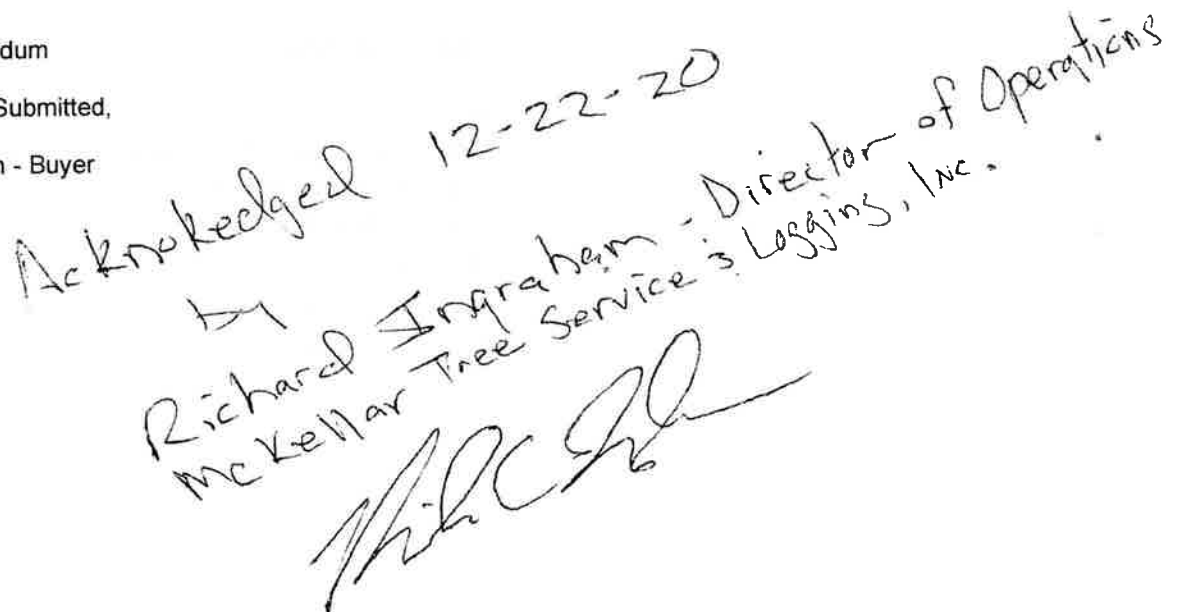 dum
Submitted,
n - Buyer
Acknokedged 12-22-20
by
Richard Ingraham - Director of Operations
McKellar Tree Service & Logging, Inc.